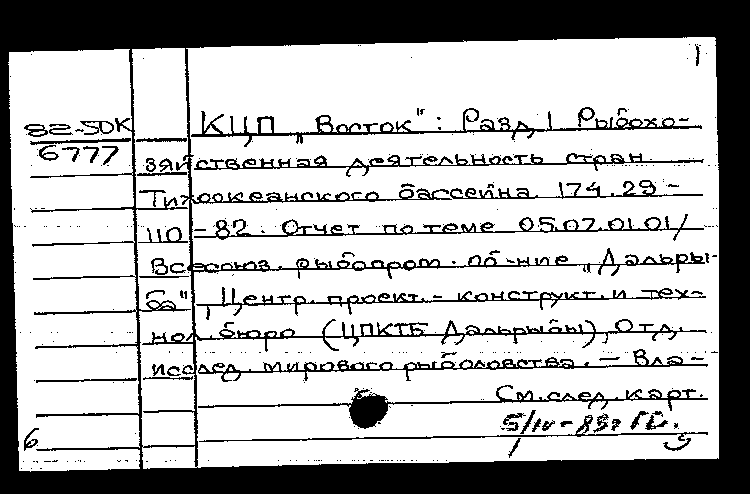 1
82-5DK КЦП „Восток": Разд. 1 Рыбохо-
6777 зяйственная деятельность стран
Тихоокеанского бассейна. 174.29-
110-82. Отчет по теме 05.07.01.01/
Всесоюз. рыбопром. об-ние „Дальры-
ба", Центр. проект.-конструкт. и тех-
нол. бюро (ЦПКТБ Дальрыбы), Отд.
исслед. мирового рыболовства. - Вла-
См. след. карт.
5/IV-83г
6